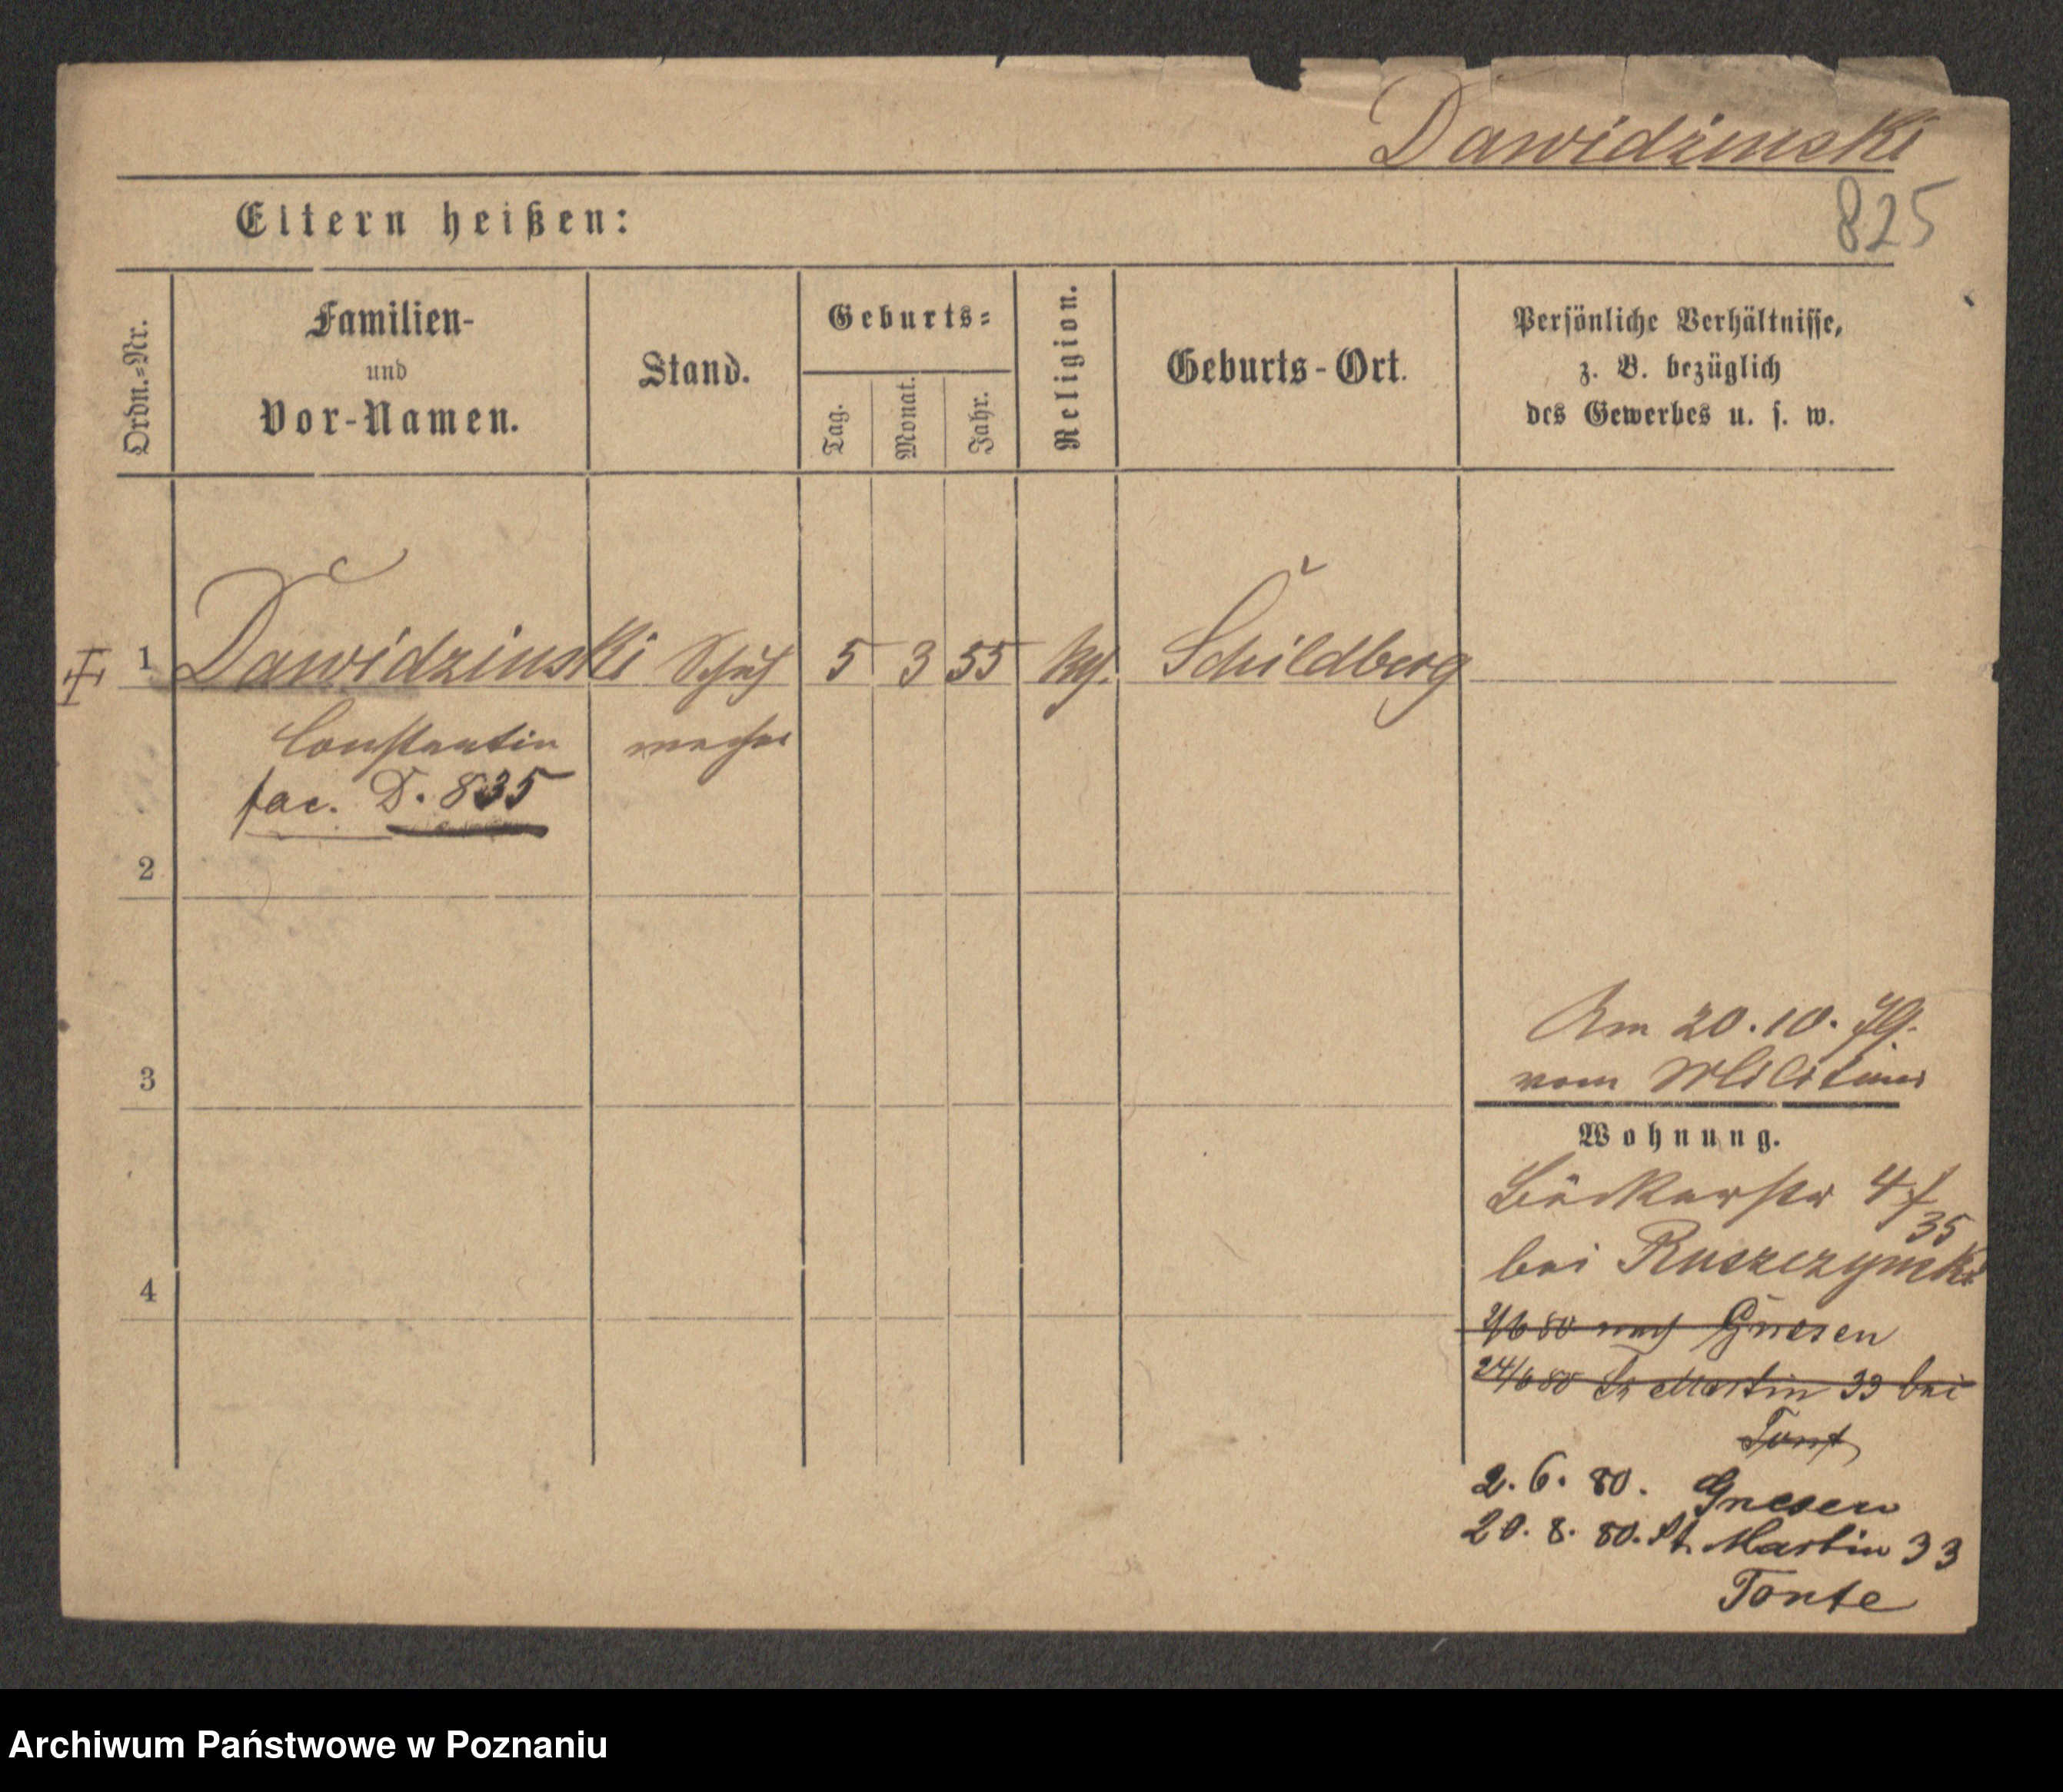 Dawidzinski
825
Eltern heißen:
Ordn.=Nr.
Familien-
und
Vor-Namen.
Stand.
Geburts=
Tag.
Monat.
Jahr.
Religion.
Geburts-Ort.
Persönliche Verhältnisse,
z. B. bezüglich
des Gewerbes u. s. w.
1 Dawidzinski Schuh 5 3 55 Schildberg
Constantin macher
fac. D. 835
2
3
4
Am 20.10.79.
vom Militair
Wohnung.
Bäckerstr
35
bei Ruszczynski
2/6 80 nach Gnesen
24/6 80 St Martin 33 bei
2. 6. 80. Gnesen
20. 8. 80. St. Martin 33
Tonte
Archiwum Państwowe w Poznaniu